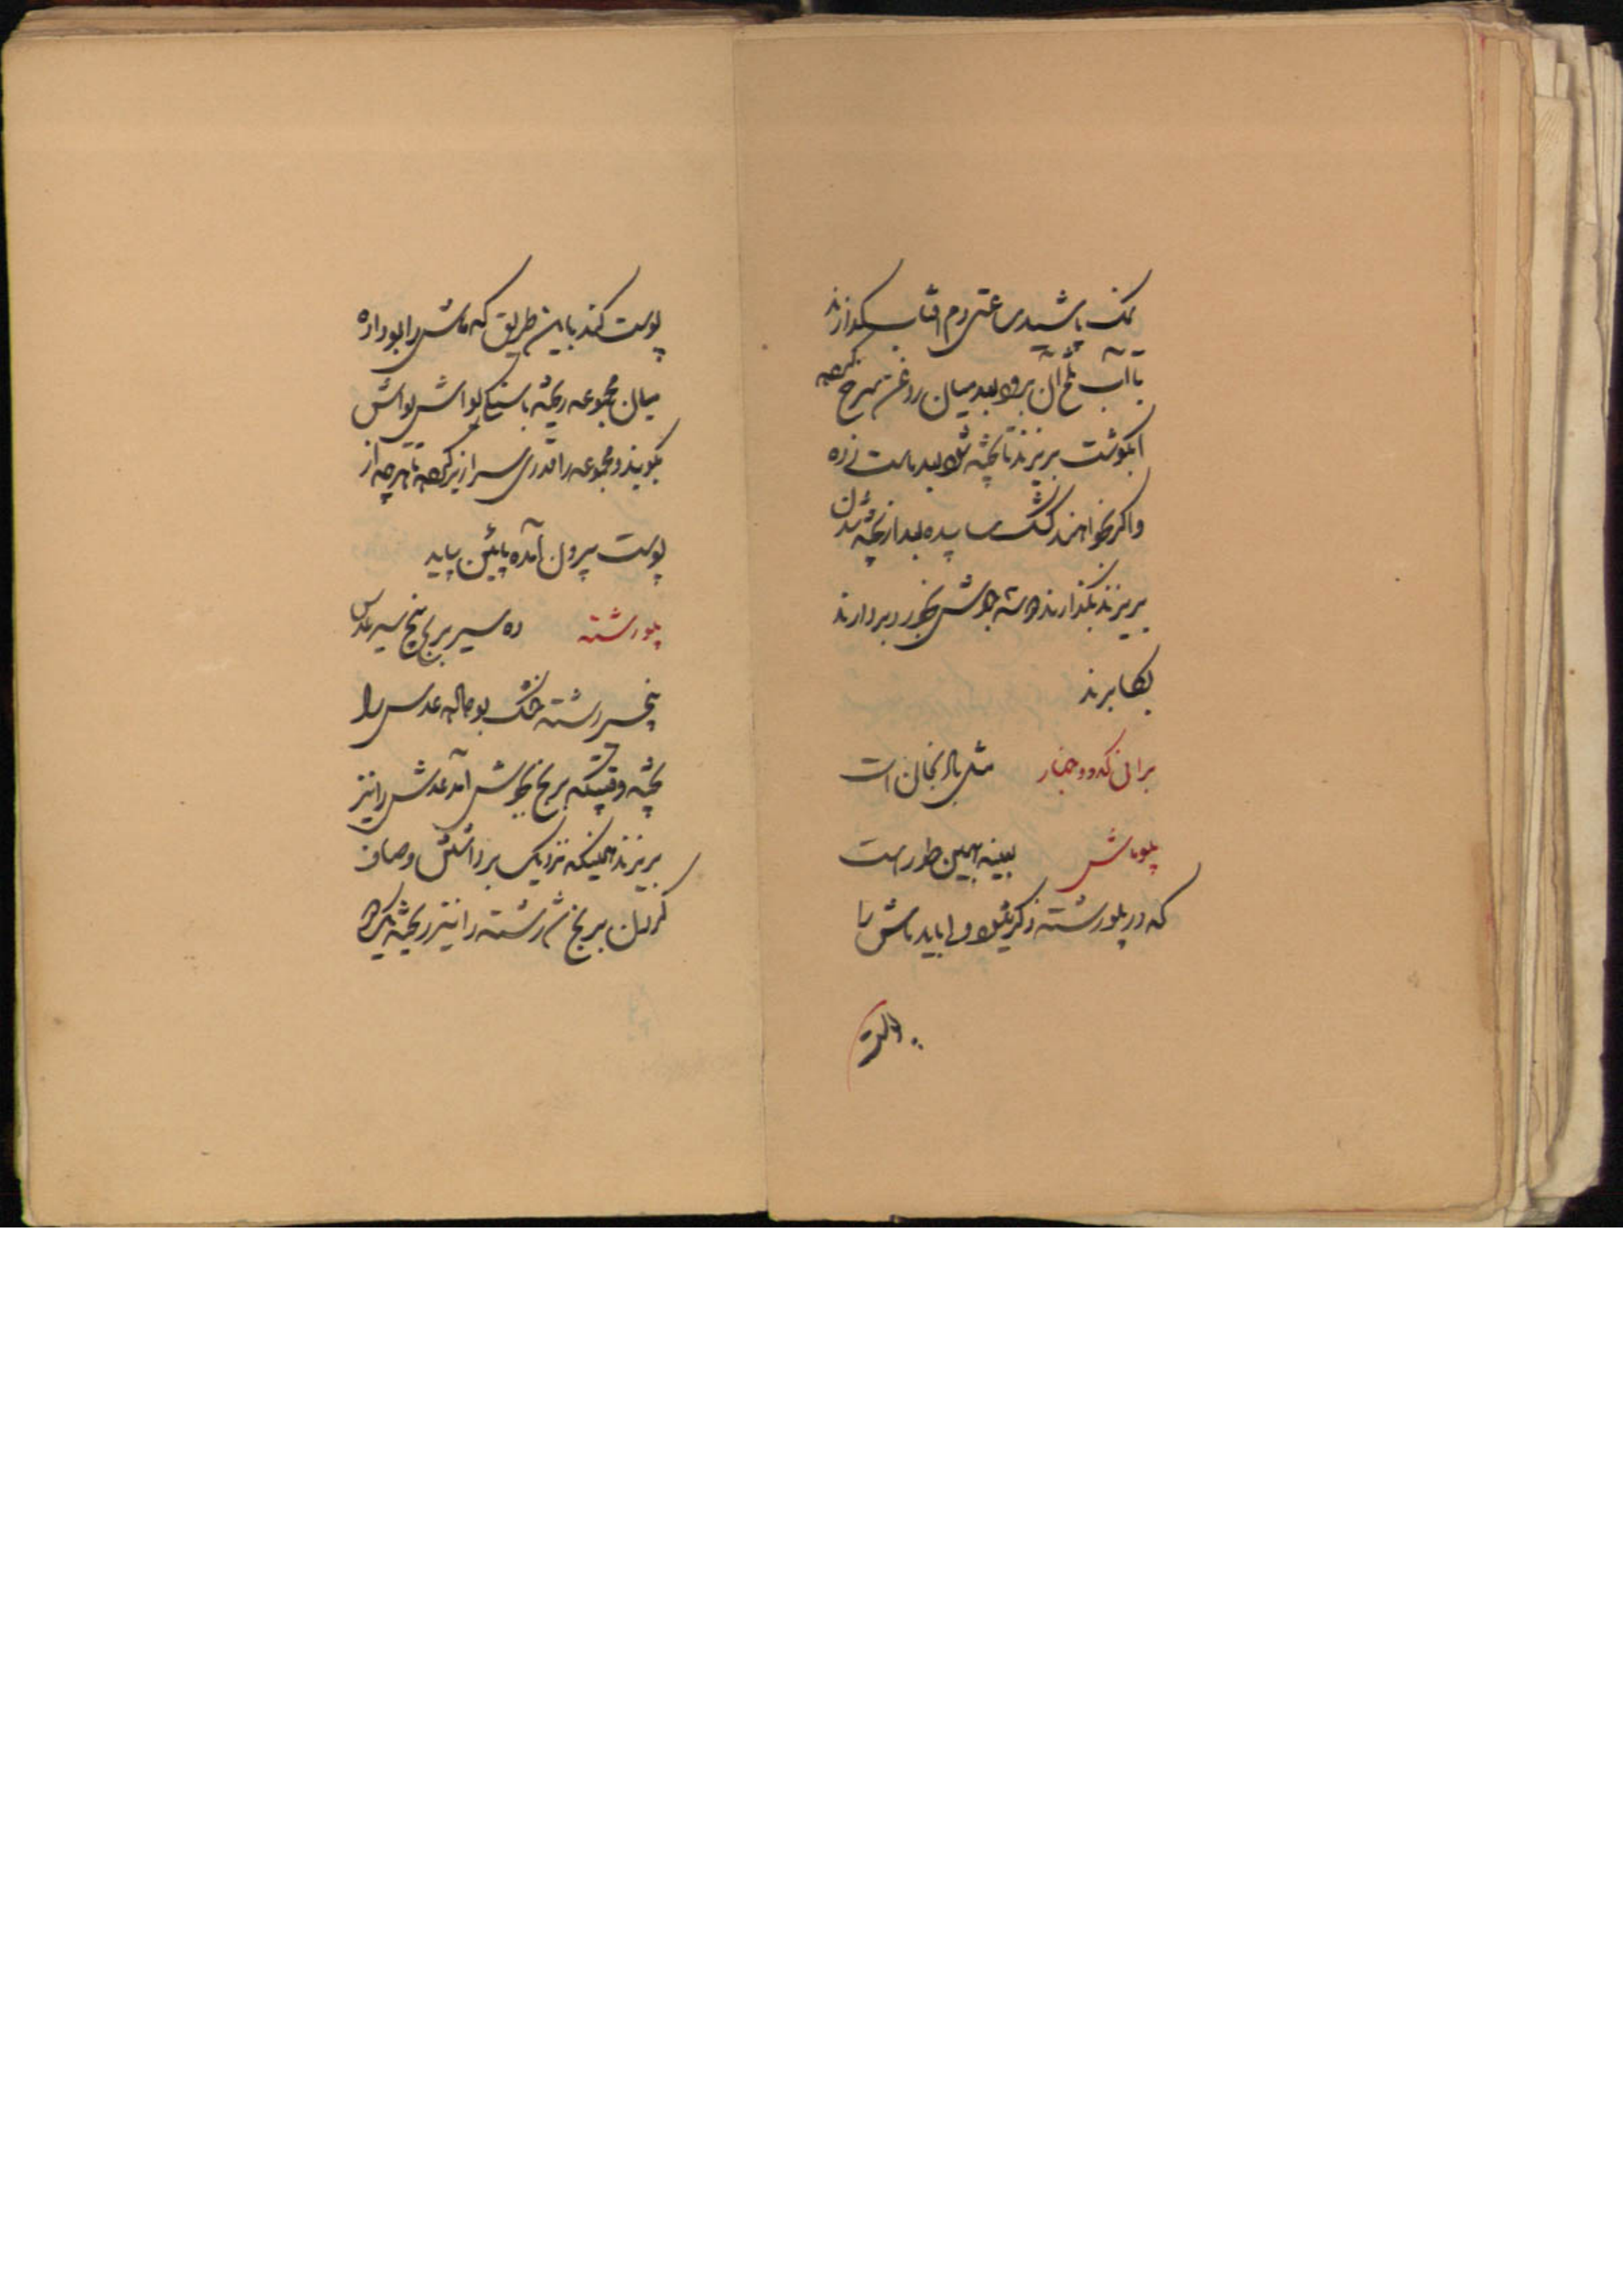 نمک پاشیده ساعتی دم افتاب بگذارند
تا آب تلخ آن برود بعد میان روغن سرخ کرده
ابگوشت بریزند تا پخته شود بعد ماست زده
و اگر بخواهند کشک سابیده بعد از پخته شدن
بریزند بگذارند دو سه جوش بخورد بردارند
بکار برند
برانی کدو و خیار مثل بادنجان است
پلو ماش بعینه همین طور است
که در پلو رشته ذکر میشود ولی باید ماش را
پوست کند باین طریق که ماش را بو داده
میان مجموعه ریخته با سنگ یواش یواش
بکوبند و مجموعه را قدری سرازیر کرده تا هرچه از
پوست بیرون آمده پائین بیاید
پلو رشته ده سیر برنج پنج سیر عدس
پنجسیر رشته خشک بو داده عدس را
پخته وقتیکه برنج بجوش آمد عدس را نیز
بریزند همینکه نزدیک برداشتن و صاف
کردن برنج شد رشته را نیز ریخته یکدو